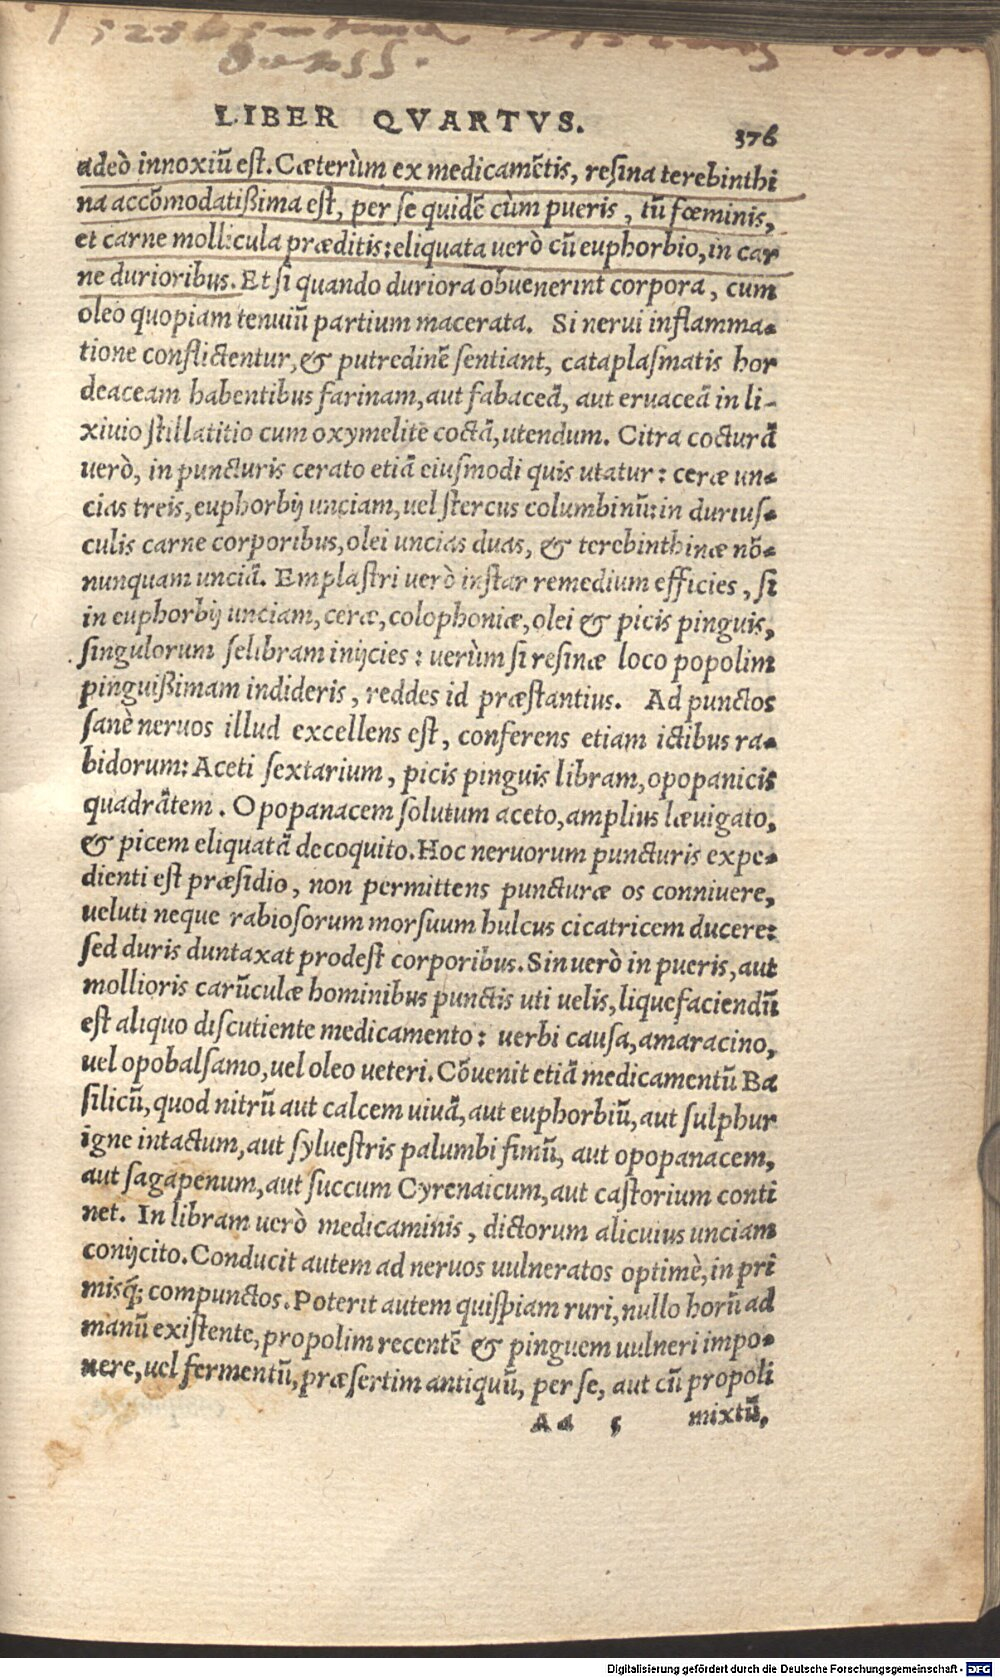 LIBER QVARTVS.
376
adeò innoxiũ est. Cæterùm ex medicamẽtis, resina terebinthi
na accõmodatißima est, per se quidẽ cùm pueris, tũ fœminis,
et carne mollicula præditis: eliquata verò cũ euphorbio, in car
ne durioribus. Et si quando duriora obuenerint corpora, cum
oleo quopiam tenuiũ partium macerata. Si nerui inflamma-
tione conflictentur, & putredinẽ sentiant, cataplasmatis hor
deaceam habentibus farinam, aut fabaceã, aut eruaceã in li-
xiuio stillatitio cum oxymelite coctã, utendum. Citra cocturã
verò, in puncturis cerato etiã eiusmodi quis utatur: ceræ un-
cias treis, euphorbij unciam, uel stercus columbinũ: in durius-
culis carne corporibus, olei uncias duas, & terebinthinæ nõ-
nunquam unciã. Emplastri uerò instar remedium efficies, si
in euphorbij unciam, ceræ, colophoniæ, olei & picis pinguis,
singulorum selibram inijcies: uerùm si resinæ loco popolim
pinguißimam indideris, reddes id præstantius. Ad punctos
sanè neruos illud excellens est, conferens etiam ictibus ra-
bidorum: Aceti sextarium, picis pinguis libram, opopanicis
quadrãtem. Opopanacem solutum aceto, amplius læuigato,
& picem eliquatã decoquito. Hoc neruorum puncturis expe-
dienti est præsidio, non permittens puncturæ os conniuere,
ueluti neque rabiosorum morsuum hulcus cicatricem ducere:
sed duris duntaxat prodest corporibus. Sin uerò in pueris, aut
mollioris carũculæ hominibus punctis uti uelis, liquefaciendũ
est aliquo discutiente medicamento: uerbi causa, amaracino,
uel opobalsamo, uel oleo ueteri. Cõuenit etiã medicamentũ Ba
silicũ, quod nitrũ aut calcem uiuã, aut euphorbiũ, aut sulphur
igne intactum, aut syluestris palumbi fimũ, aut opopanacem,
aut sagapenum, aut succum Cyrenaicum, aut castorium conti
net. In libram uerò medicaminis, dictorum alicuius unciam
conijcito. Conducit autem ad neruos uulneratos optimè, in pri
misq́; compunctos. Poterit autem quispiam ruri, nullo horũ ad
manũ existente, propolim recentẽ & pinguem uulneri impo-
nere, uel fermentũ, præsertim antiquũ, per se, aut cũ propoli
Aa 5 mixtũ,
Digitalisierung gefördert durch die Deutsche Forschungsgemeinschaft - DFG